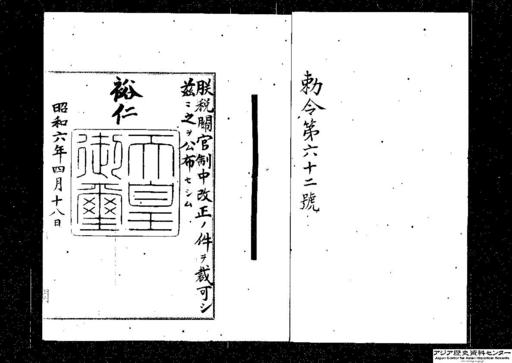 勅令第六十二號
朕税關官制中改正ノ件ヲ裁可シ
茲ニ之ヲ公布セシム
裕仁
天皇
御璽
昭和六年四月十八日
アジア歴史資料センター
Japan Center for Asian Historical Records